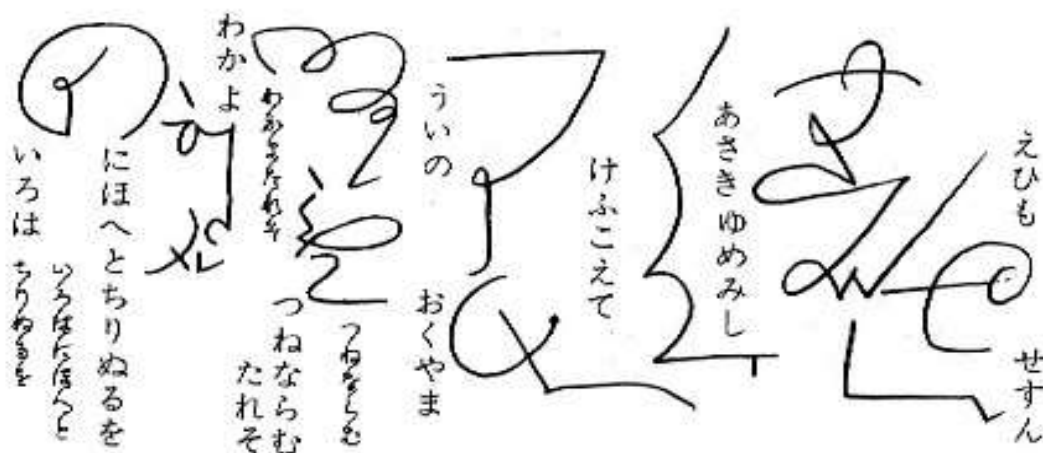 いろは
にほへとちりぬるを
いろはにほへと
ちりぬるを
わかよ
たれそ
わかよたれそ
つねならむ
つねならむ
ういの
おくやま
けふこえて
あさきゆめみし
えひも
せすん